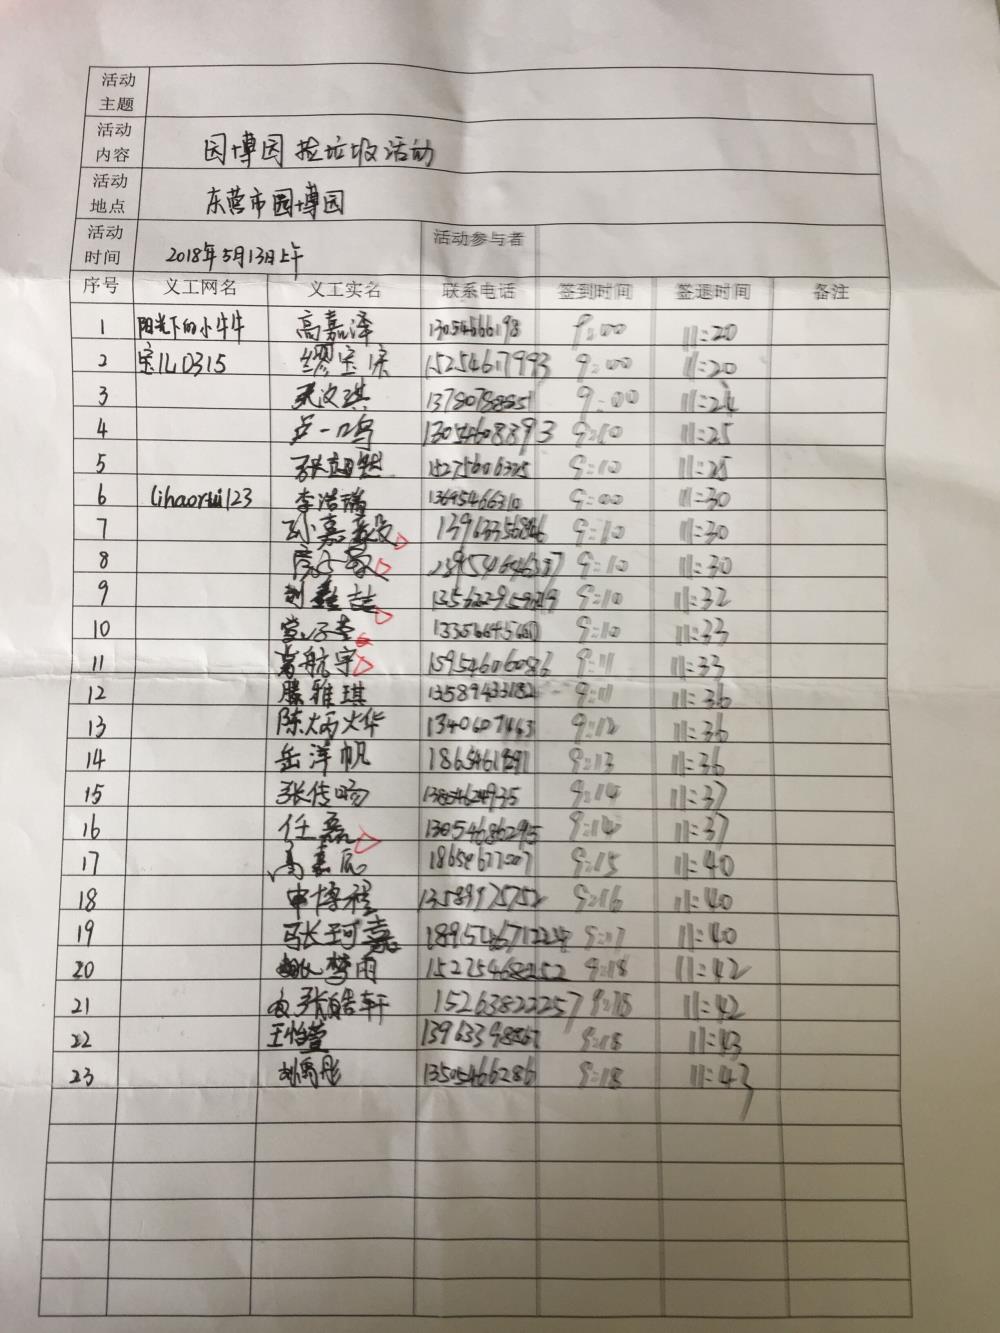 活动主题
活动内容 园博园捡垃圾活动
活动地点 东营市园博园
活动时间 2018年5月13日上午 活动参与者
序号 义工网名 义工实名 联系电话 签到时间 签退时间 备注
1 阳光下的小牛牛 高嘉泽 13054666198 9:00 11:20
2 缪宝 15254617993 9:00 11:20
3 9:00 11:24
4 卢一鸣 13054608893 9:10 11:25
5 15275606325 9:10 11:25
6 lihaorui123 李浩瑞 13695466310 9:00 11:30
7 孙嘉毅 9:10 11:30
8 9:10 11:30
9 刘鑫喆 9:10 11:32
10 9:10 11:33
11 航宇 15954606086 9:11 11:33
12 滕雅琪 13589433182 9:11 11:36
13 陈炳烨 9:12 11:36
14 岳洋帆 9:13 11:36
15 张传旸 9:14 11:37
16 任磊 13054686295 9:14 11:37
17 高嘉辰 18654677007 9:15 11:40
18 申博程 13589975752 9:16 11:40
19 张珂嘉 9:17 11:40
20 姚梦雨 15275468252 9:18 11:42
21 张皓轩 15263822257 9:18 11:42
22 王怡萱 9:18 11:43
23 刘禹彤 13505466286 9:18 11:43